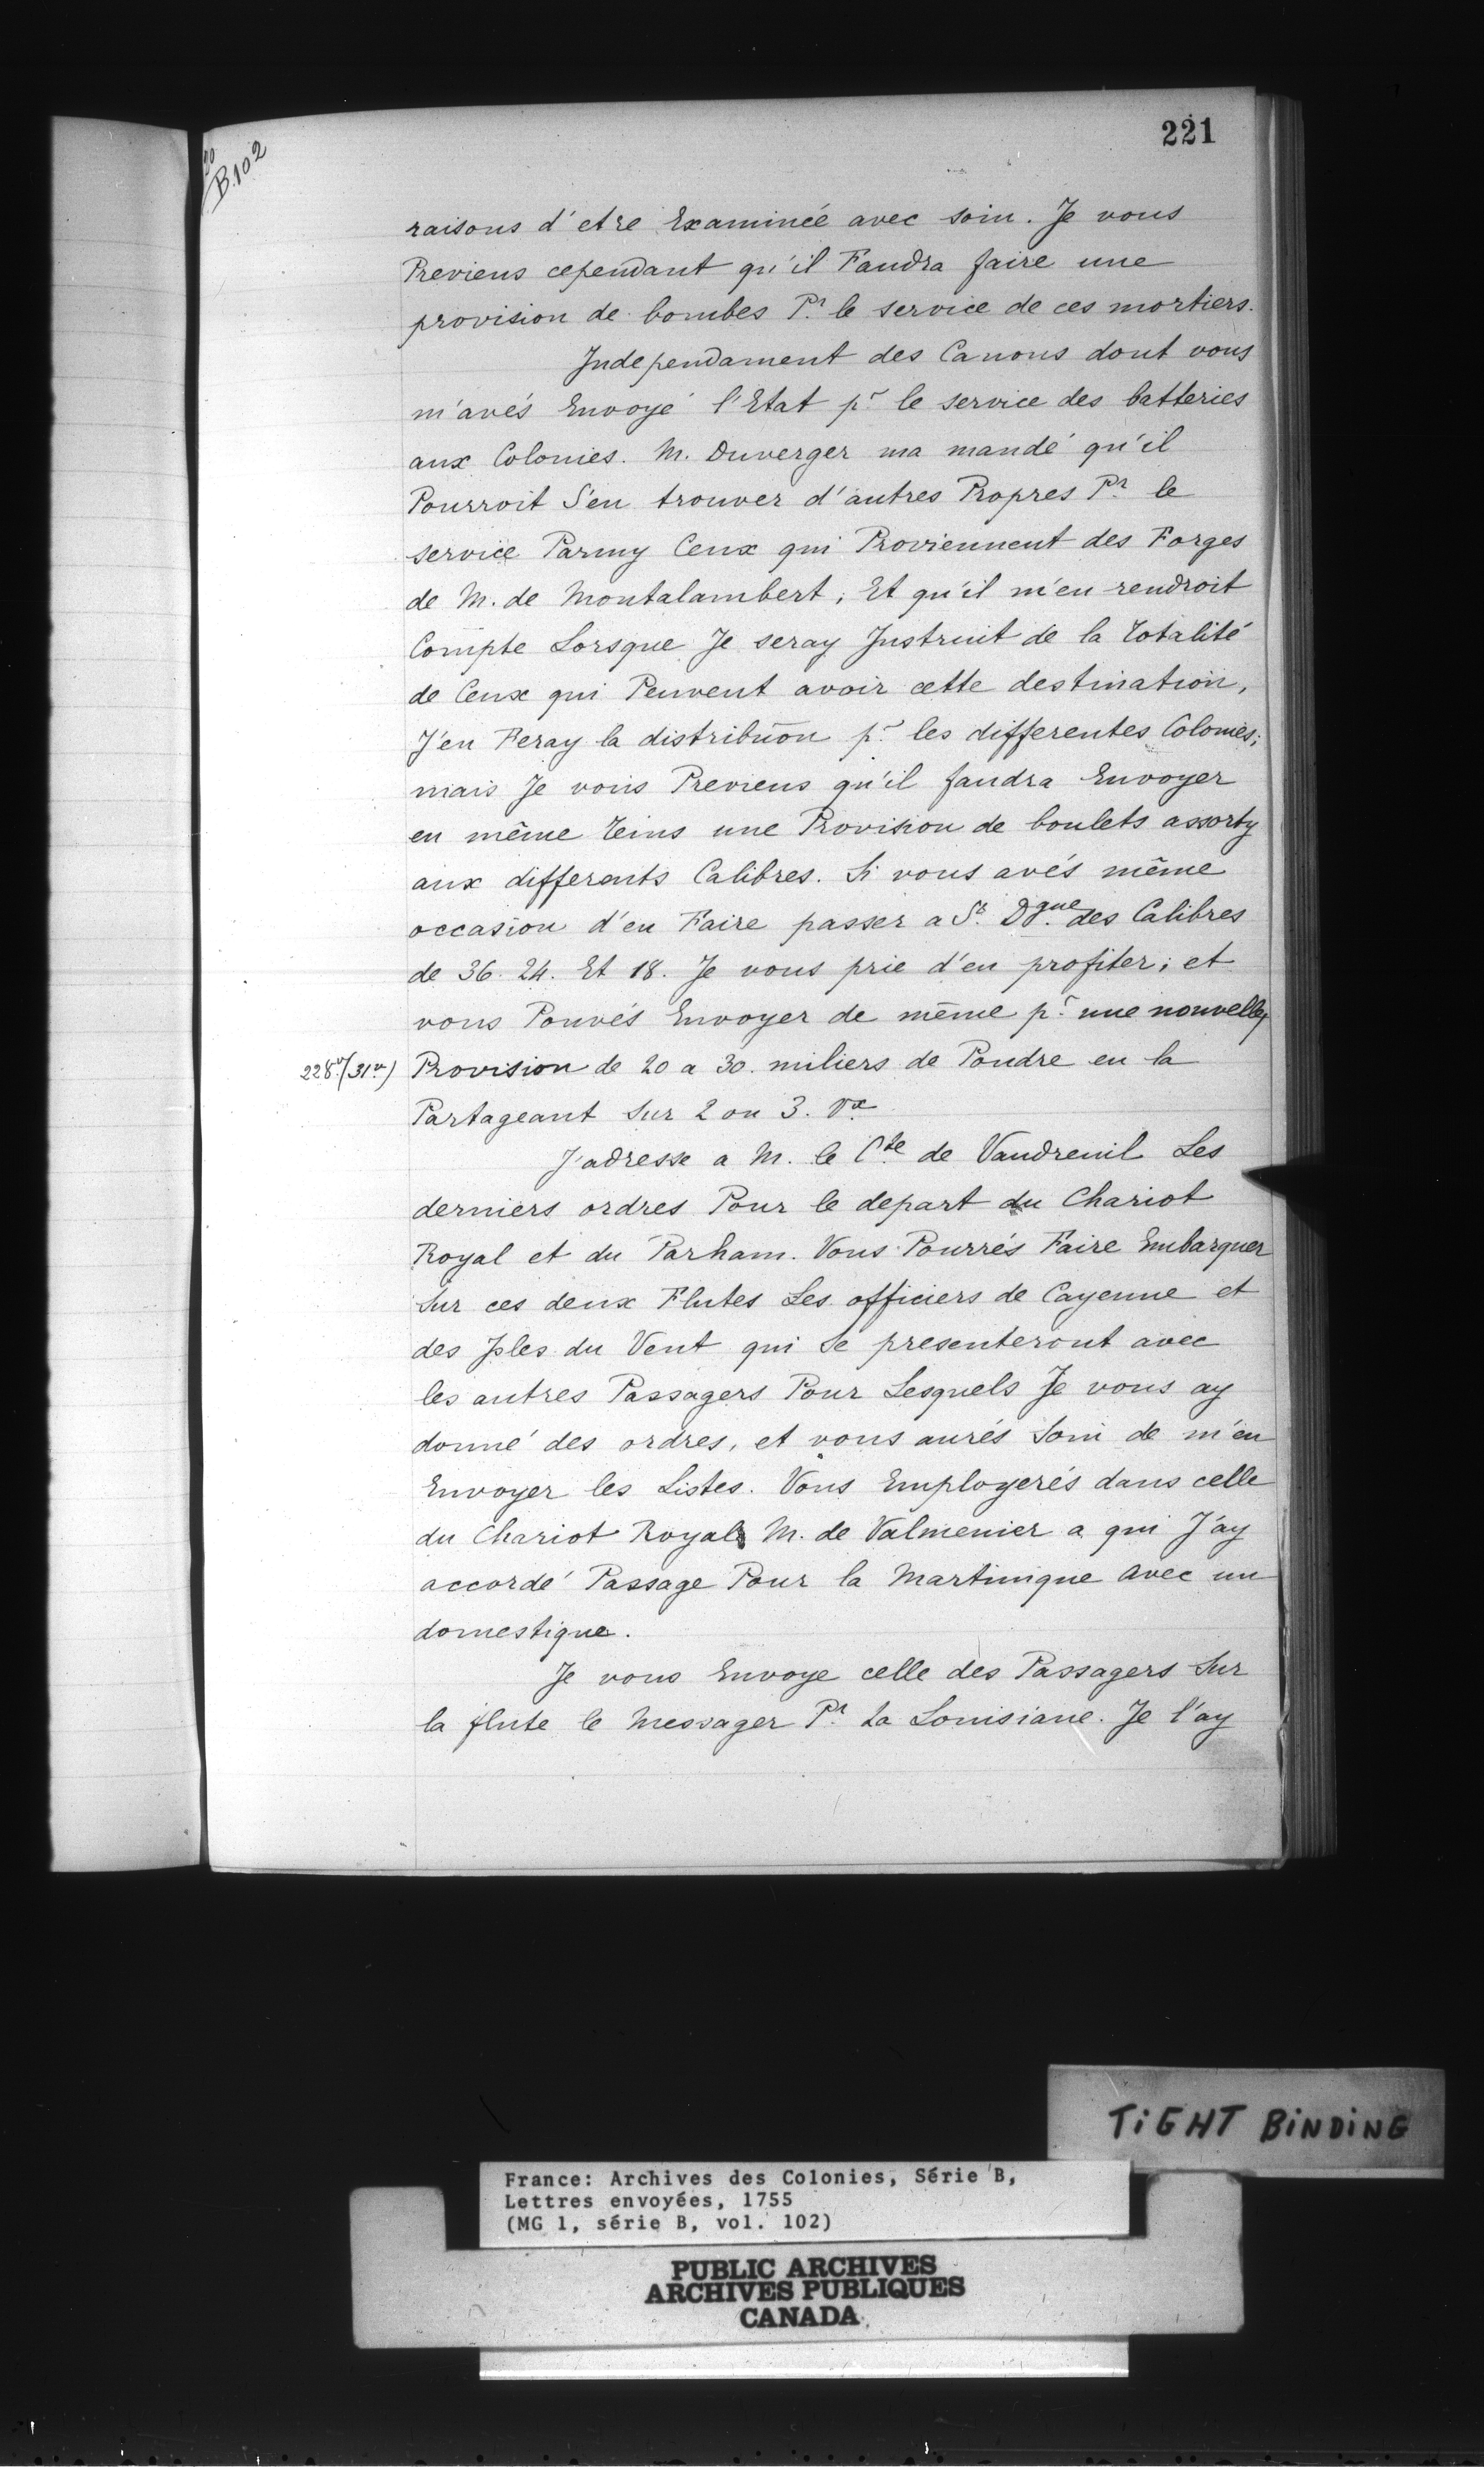 221
B.102
raisons d'etre Examinée avec soin. Je vous
Previens cependant qu'il Faudra faire une
provision de bombes Pr. le service de ces mortiers.
Independament des Canons dont vous
m'avés Envoyé l'Etat pr. le service des batteries
aux Colonies. M. Duverger ma mandé qu'il
Pourroit S'en trouver d'autres Propres Pr. le
service Parmy Ceux qui Proviennent des Forges
de M. de Montalambert, Et qu'il m'en rendroit
Compte Lorsque Je seray Instruit de la totalité
de Ceux qui Peuvent avoir cette destination,
J'en Feray la distribuōn pr. les differentes Colonies;
mais Je vous Previens qu'il faudra Envoyer
en même tems une Provision de boulets assorty
aux differents Calibres. Si vous avés même
occasion d'en Faire passer a St. Dgue. des Calibres
de 36. 24. Et 18. Je vous prie d'en profiter; et
vous Pouvés Envoyer de même pr. une nouvelle
228v/(31v) Provision de 20 a 30. miliers de Poudre en la
Partageant Sur 2 ou 3. Vx.
J'adresse a M. le Cte. de Vaudreuil Les
derniers ordres Pour le depart du Chariot
Royal et du Parham. Vous Pourrés Faire Embarquer
Sur ces deux Flutes Les officiers de Cayenne et
des Isles du Vent qui Se presenteront avec
les autres Passagers Pour Lesquels Je vous ay
donné des ordres, et vous aurés Soin de m'en
Envoyer les Listes. Vous Employerés dans celle
du Chariot Royal M. de Valmenier a qui J'ay
accordé Passage Pour la Martinique avec un
domestique.
Je vous Envoye celle des Passagers Sur
la flute le Messager Pr. La Louisiane. Je l'ay
TiGHT BiNDiNG
France: Archives des Colonies, Série B,
Lettres envoyées, 1755
(MG 1, série B, vol. 102)
PUBLIC ARCHIVES
ARCHIVES PUBLIQUES
CANADA